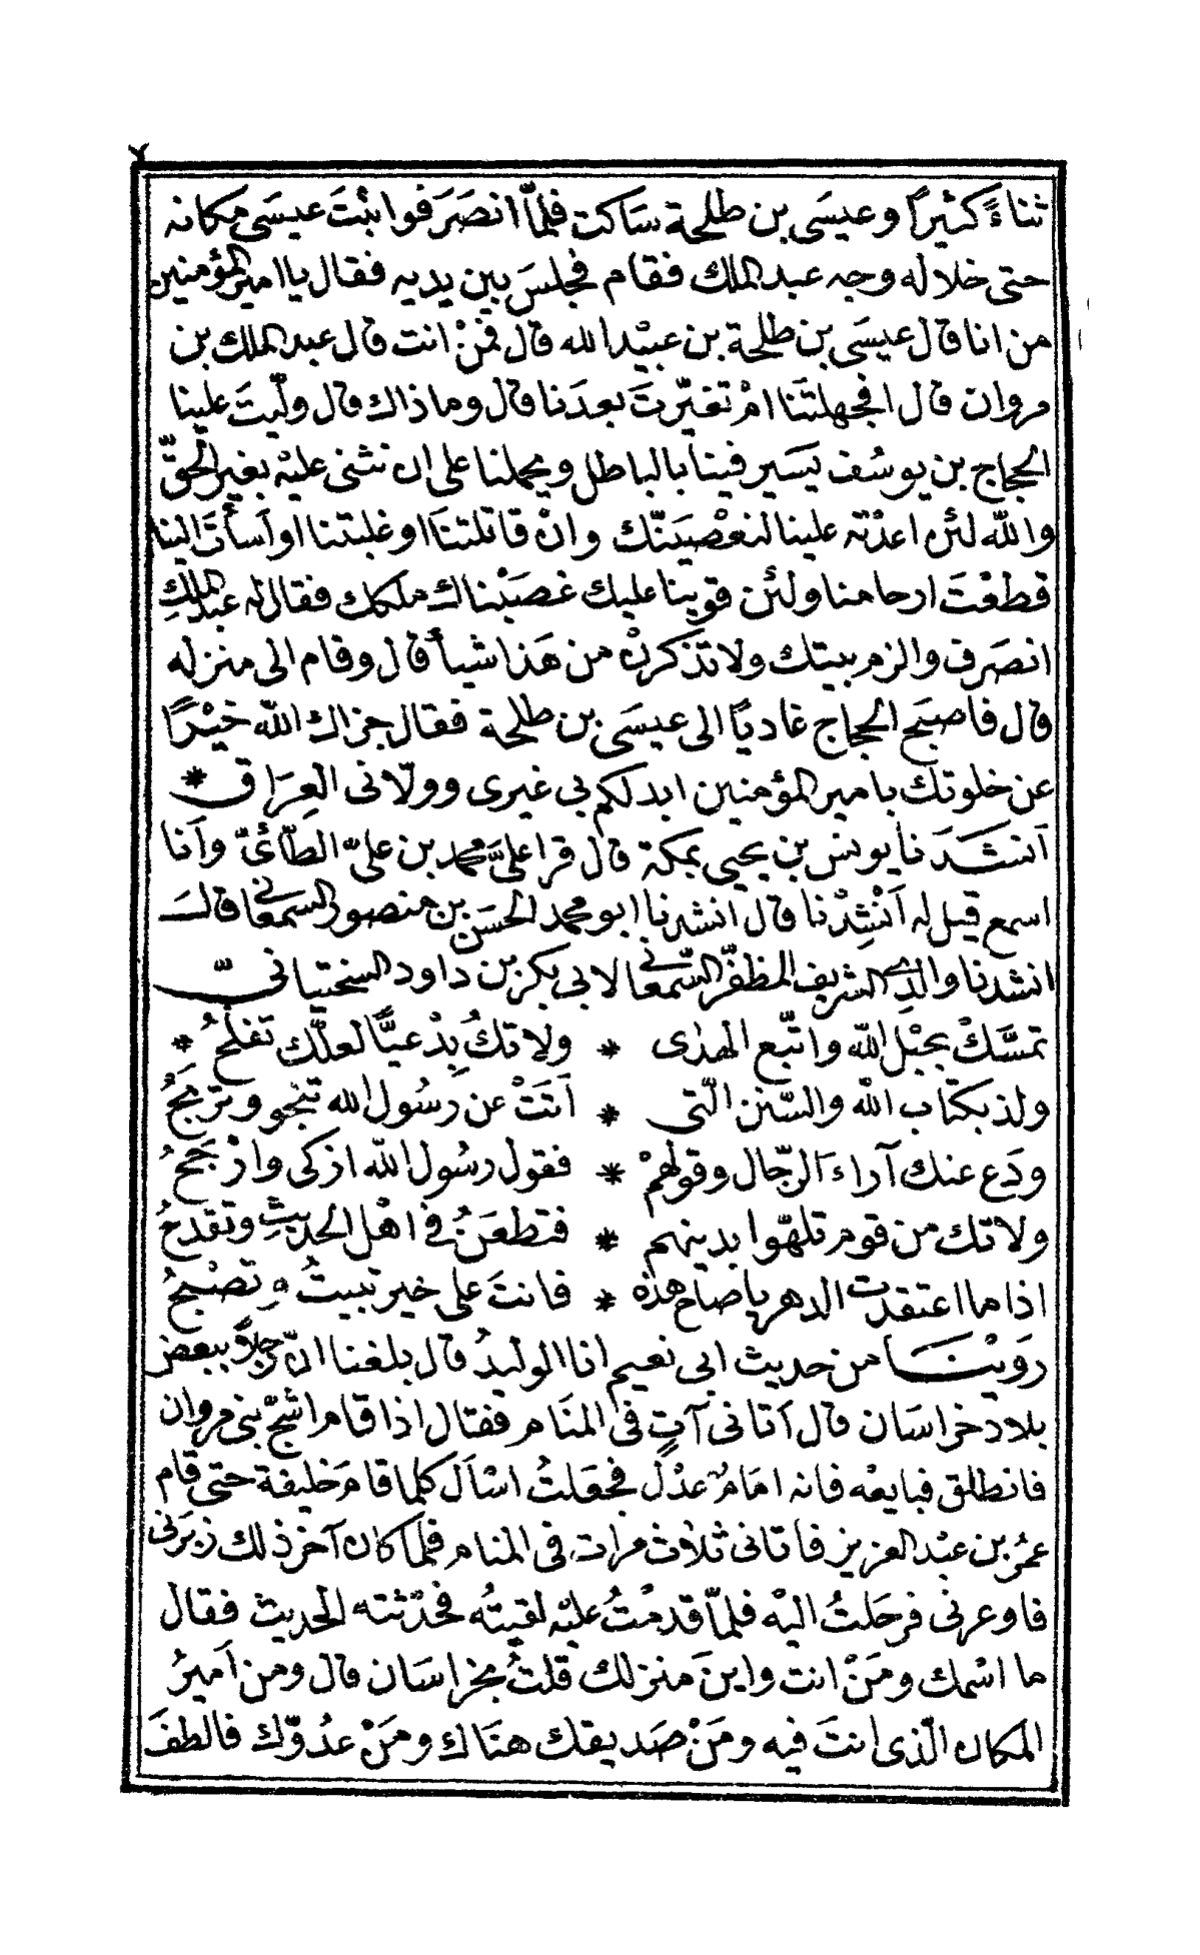 ٢
ثناءً كثيرًا وعيسَى بن طلحة سَاكت فلمّا انصَرَفوا ثبْتَ عيسَى مكانه
حتى خلا له وجه عبد الملك فقام فجلسَ بين يديه فقال يا امير المؤمنين
من انا قال عيسَى بن طلحة بن عبيْد الله قال فمَنْ انت قال عبد الملك بن
مروان قال افجهلتَنا امْ تغيّرتَ بعدَنا قال وما ذاك قال ولّيتَ علينا
الحجاج بن يوسُف يَسَير فينا بالباطل ويحملنا على ان نثنى عليْه بغير الحقّ
والله لئن اعدْته علينا لنعْصِيَنّك وانْ قاتلتنَا وغلبتنا واَسأتَ الينا
قطعْتَ ارحامنا ولئن قوينا عليك غصَبْناك ملكك فقال له عبد الملكِ
انصَرف والزم بيتك ولا تذكرنْ من هَذا شيأ قال وقام الى منزله
قال فاصبَح الحجاج غاديًا الى عيسَى بن طلحة فقال جزاك الله خيْرًا
عن خلوتك بامير المؤمنين ابدلكم بى غيرى وولّانى العِرَاق *
اَنشَدَنا يونس بن يحيى بمكة قال قرا علىَّ محمد بن علىّ الطّائىّ واَنا
اسمع قيل له اَنْشِدْنا قال انشدنا ابو محمد الحسَن بن منصور السمعانى قالـ
انشدنا والدى الشريف المظفّر السّمعانى لابى بكر بن داود السختيانىّ
تمسَّكْ بحبْل الله واتّبع الهدٰى * ولا تكُ بِدْعيًّا لعلّك تفلحُ *
ولذ بكتاب الله والسّنن الّتى * اَتَتْ عن رسُول الله تنجو وتربَحُ
ودَع عنك آراءَ الرّجال وقولهمْ * فقول رسُول الله ازكى وارْجَحُ
ولا تك من قوم تلهّوا بدينهم * فتطعَنُ فى اهْل الحديثِ وتقدحُ
اذا ما اعتقدت الدهر يا صاح هذه * فانتَ على خير تبيتُ وتصْبحُ
روَيْنا من حديث ابى نعيم انا الوليدُ قال بلغنا انّ رجلاً ببعض
بلاد خراسَان قال اَتانى آتٍ فى المنَام فقال اذا قام اشجّ بنى مروان
فانطلق فبايعْه فانه امَامُ عدْل فجعَلتُ اسْاَل كلما قامَ خليفة حتى قام
عمُر بن عبْد العزيز فأتانى ثلاث مرات فى المنام فلما كان آخر ذلك زبَرَنى
فاوعدنى فرحَلتُ اليْه فلمّا قدمْتُ عليْه لقيتُه فحدّثته الحديث فقال
ما اسْمك ومَنْ انت واينَ منزلك قلتُ بخراسَان قال ومن اَميرُ
المكان الّذى انتَ فيه ومَنْ صَديقك هنَاك ومَنْ عدُوّك فالطفَ